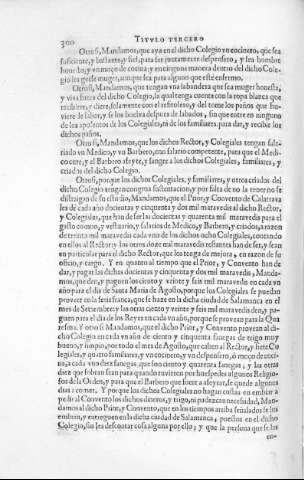 300 TITVLO TERCERO
Otrosi, Mandamos, que aya en el dicho Colegio vn cocinero, que sea
suficiente, y bastante, y fiel, para ser juntamente despensero, y sea hombre
honesto, y en moço de cozina; y en ninguna manera dentro del dicho Cole-
gio sea gente muger, aunque sea para alguno que esté enfermo.
Otrosi, Mandamos, que tengan vna labandera que sea muger honesta,
y viua fuera del dicho Colegio, la qual tenga cuenta con la ropa blanca que
recibiere, y diere, solamente con el refitolero, y del tome los paños que hu-
uiere de labar, y se los buelua despues de labados, sin que entre en ninguno
de los aposentos de los Colegiales, ni de los familiares, para dar, y recibir los
dichos paños.
Otrosi, Mandamos, que los dichos Rector, y Colegiales tengan sala-
riado vn Medico, y vn Barbero, con salario competente, para que el Medi-
co cure, y el Barbero afeyte, y sangre a los dichos Colegiales, familiares, y
criados del dicho Colegio.
Otrosi, porque los dichos Colegiales, y familiares, y otros criados del
dicho Colegio tengan congrua sustentacion, y por falta de no la tener no se
distraigan de su estudio, Mandamos, que el Prior, y Conuento de Calatraua
les dè cada año docientas y cinquenta y dos mil marauedis al dicho Rector,
y Colegiales, que han de ser las docientas y quarenta mil marauedis para el
gasto comun, y vestuario, y salarios de Medico, y Barbero, y criados, a razon
de treinta mil marauedis cada vno de los dichos ocho Colegiales, contando
en ellos al Rector; y los otros doze mil marauedis restantes han de ser, y sean
en particular para el dicho Rector, que los tenga de mejora, en razon de su
oficio, y cargo. Y en quanto al tiempo que el Prior, y Conuento han de
dar, y pagar las dichas docientas y cinquenta y dos mil marauedis, Manda-
mos, que den, y paguen los ciento y veinte y seis mil marauedis en cada vn
año para el dia de Santa Maria de Agosto, porque los Colegiales se puedan
proueer en la feria franca, que se haze en la dicha ciudad de Salamanca en el
mes de Setiembre; y las otras ciento y veinte y seis mil marauedis den, y pa-
guen para el dia de los Reyes en cada vn año, porque se prouean para la Qua
resma. Y otrosi Mandamos, que el dicho Prior, y Conuento prouean al di-
cho Colegio en cada vn año de ciento y cinquenta fanegas de trigo muy
bueno, y limpio, por todo el mes de Agosto, que caben al Rector, y siete Co
legiales, y quatro familiares, y vn cocinero, y vn despensero, ò moço de coci-
na, a cada vno diez fanegas, que son ciento y quarenta fanegas, y las otras
diez que sobran sean para quando vinieren por huespedes algunos Religio-
sos de la Orden, y para que el Barbero que fuere a afeytar, se quede algunos
dias a comer. Y porque los dichos Colegiales no hagan costas en embiar a
pedir al Conuento los dichos dineros, y trigo, ni padezcan necessidad, Man-
damos al dicho Prior, y Conuento, que en los tiempos arriba señalados se los
embien, y entreguen en la dicha ciudad de Salamanca, puestos en el dicho
Colegio, sin les descontar cosa alguna por ello; y que la persona que se las
en-